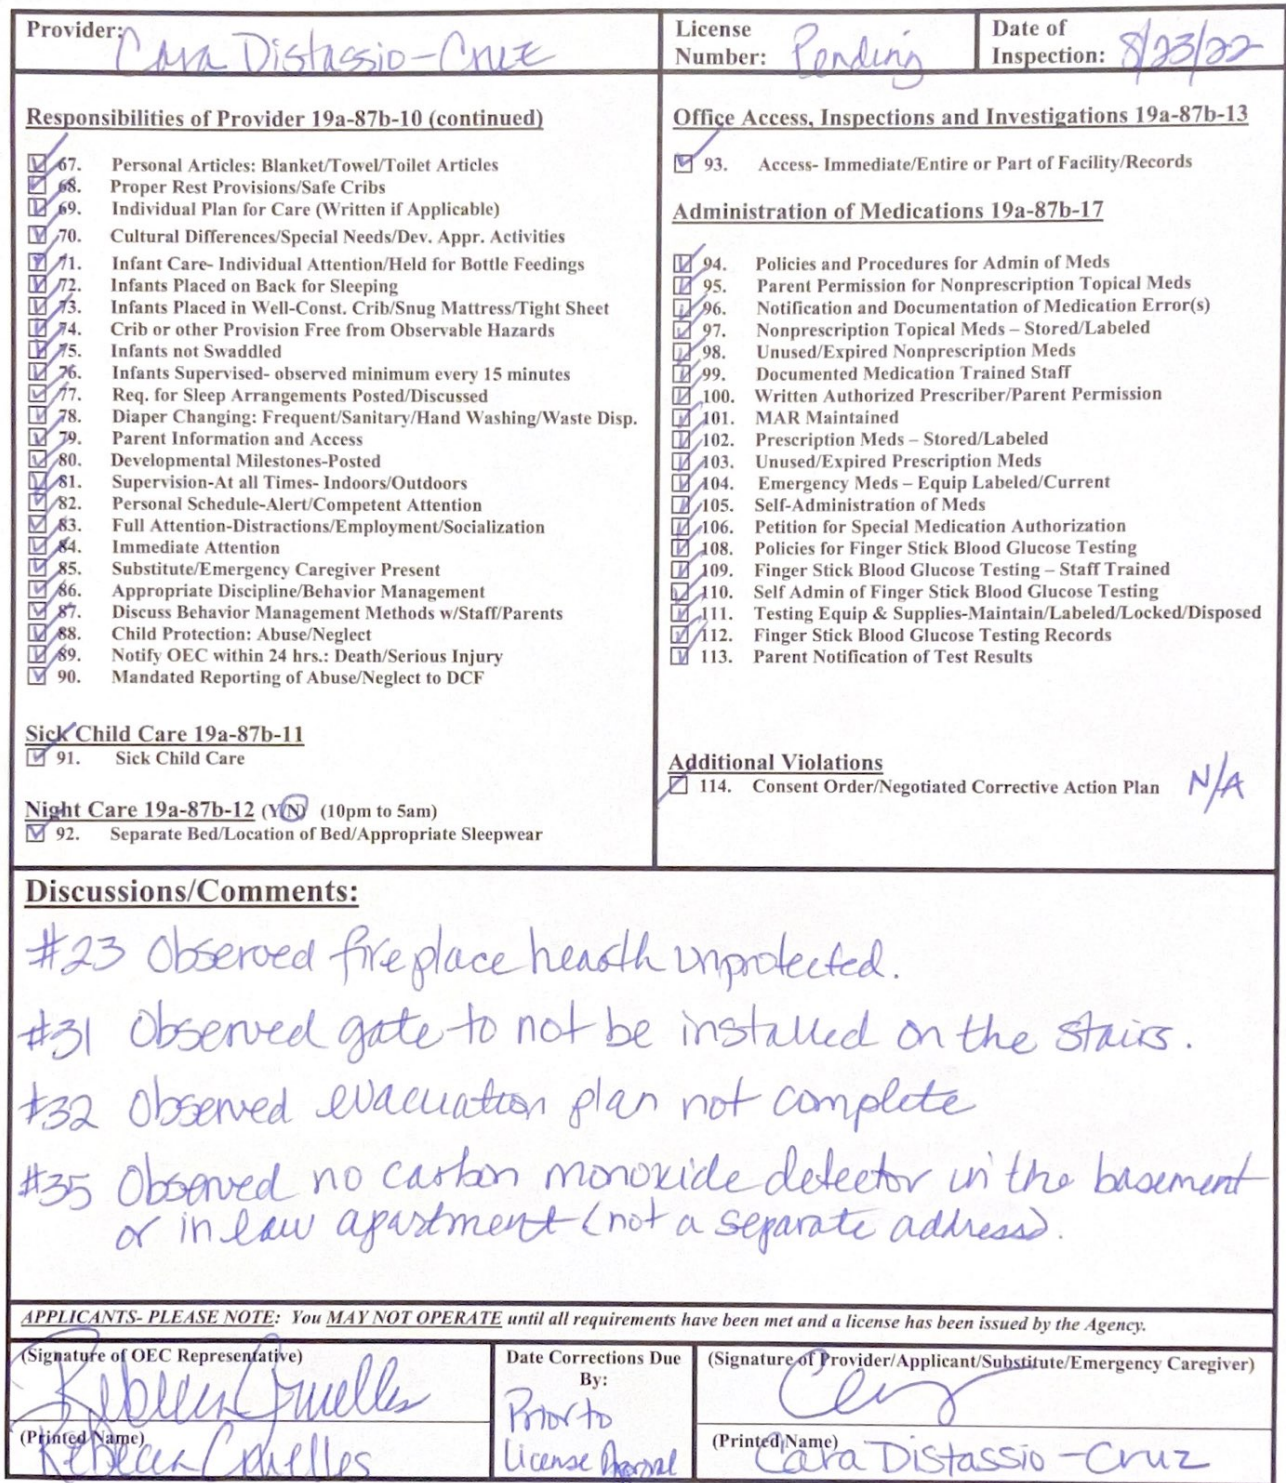 Provider: Cara Distassio-Cruz
License Number: Pending
Date of Inspection: 8/23/22
Responsibilities of Provider 19a-87b-10 (continued)
67. Personal Articles: Blanket/Towel/Toilet Articles
68. Proper Rest Provisions/Safe Cribs
69. Individual Plan for Care (Written if Applicable)
70. Cultural Differences/Special Needs/Dev. Appr. Activities
71. Infant Care- Individual Attention/Held for Bottle Feedings
72. Infants Placed on Back for Sleeping
73. Infants Placed in Well-Const. Crib/Snug Mattress/Tight Sheet
74. Crib or other Provision Free from Observable Hazards
75. Infants not Swaddled
76. Infants Supervised- observed minimum every 15 minutes
77. Req. for Sleep Arrangements Posted/Discussed
78. Diaper Changing: Frequent/Sanitary/Hand Washing/Waste Disp.
79. Parent Information and Access
80. Developmental Milestones-Posted
81. Supervision-At all Times- Indoors/Outdoors
82. Personal Schedule-Alert/Competent Attention
83. Full Attention-Distractions/Employment/Socialization
84. Immediate Attention
85. Substitute/Emergency Caregiver Present
86. Appropriate Discipline/Behavior Management
87. Discuss Behavior Management Methods w/Staff/Parents
88. Child Protection: Abuse/Neglect
89. Notify OEC within 24 hrs.: Death/Serious Injury
90. Mandated Reporting of Abuse/Neglect to DCF
Sick Child Care 19a-87b-11
91. Sick Child Care
Night Care 19a-87b-12 (Y/N) (10pm to 5am)
92. Separate Bed/Location of Bed/Appropriate Sleepwear
Office Access, Inspections and Investigations 19a-87b-13
93. Access- Immediate/Entire or Part of Facility/Records
Administration of Medications 19a-87b-17
94. Policies and Procedures for Admin of Meds
95. Parent Permission for Nonprescription Topical Meds
96. Notification and Documentation of Medication Error(s)
97. Nonprescription Topical Meds – Stored/Labeled
98. Unused/Expired Nonprescription Meds
99. Documented Medication Trained Staff
100. Written Authorized Prescriber/Parent Permission
101. MAR Maintained
102. Prescription Meds – Stored/Labeled
103. Unused/Expired Prescription Meds
104. Emergency Meds – Equip Labeled/Current
105. Self-Administration of Meds
106. Petition for Special Medication Authorization
108. Policies for Finger Stick Blood Glucose Testing
109. Finger Stick Blood Glucose Testing – Staff Trained
110. Self Admin of Finger Stick Blood Glucose Testing
111. Testing Equip & Supplies-Maintain/Labeled/Locked/Disposed
112. Finger Stick Blood Glucose Testing Records
113. Parent Notification of Test Results
Additional Violations
114. Consent Order/Negotiated Corrective Action Plan N/A
Discussions/Comments:
#23 Observed fireplace hearth unprotected.
#31 Observed gate to not be installed on the stairs.
#32 Observed evacuation plan not complete
#35 Observed no carbon monoxide detector in the basement
or in law apartment (not a separate address).
APPLICANTS- PLEASE NOTE: You MAY NOT OPERATE until all requirements have been met and a license has been issued by the Agency.
(Signature of OEC Representative)
(Printed Name) Rebecca
Date Corrections Due
By:
Prior to
License Approval
(Signature of Provider/Applicant/Substitute/Emergency Caregiver)
(Printed Name) Cara Distassio-Cruz